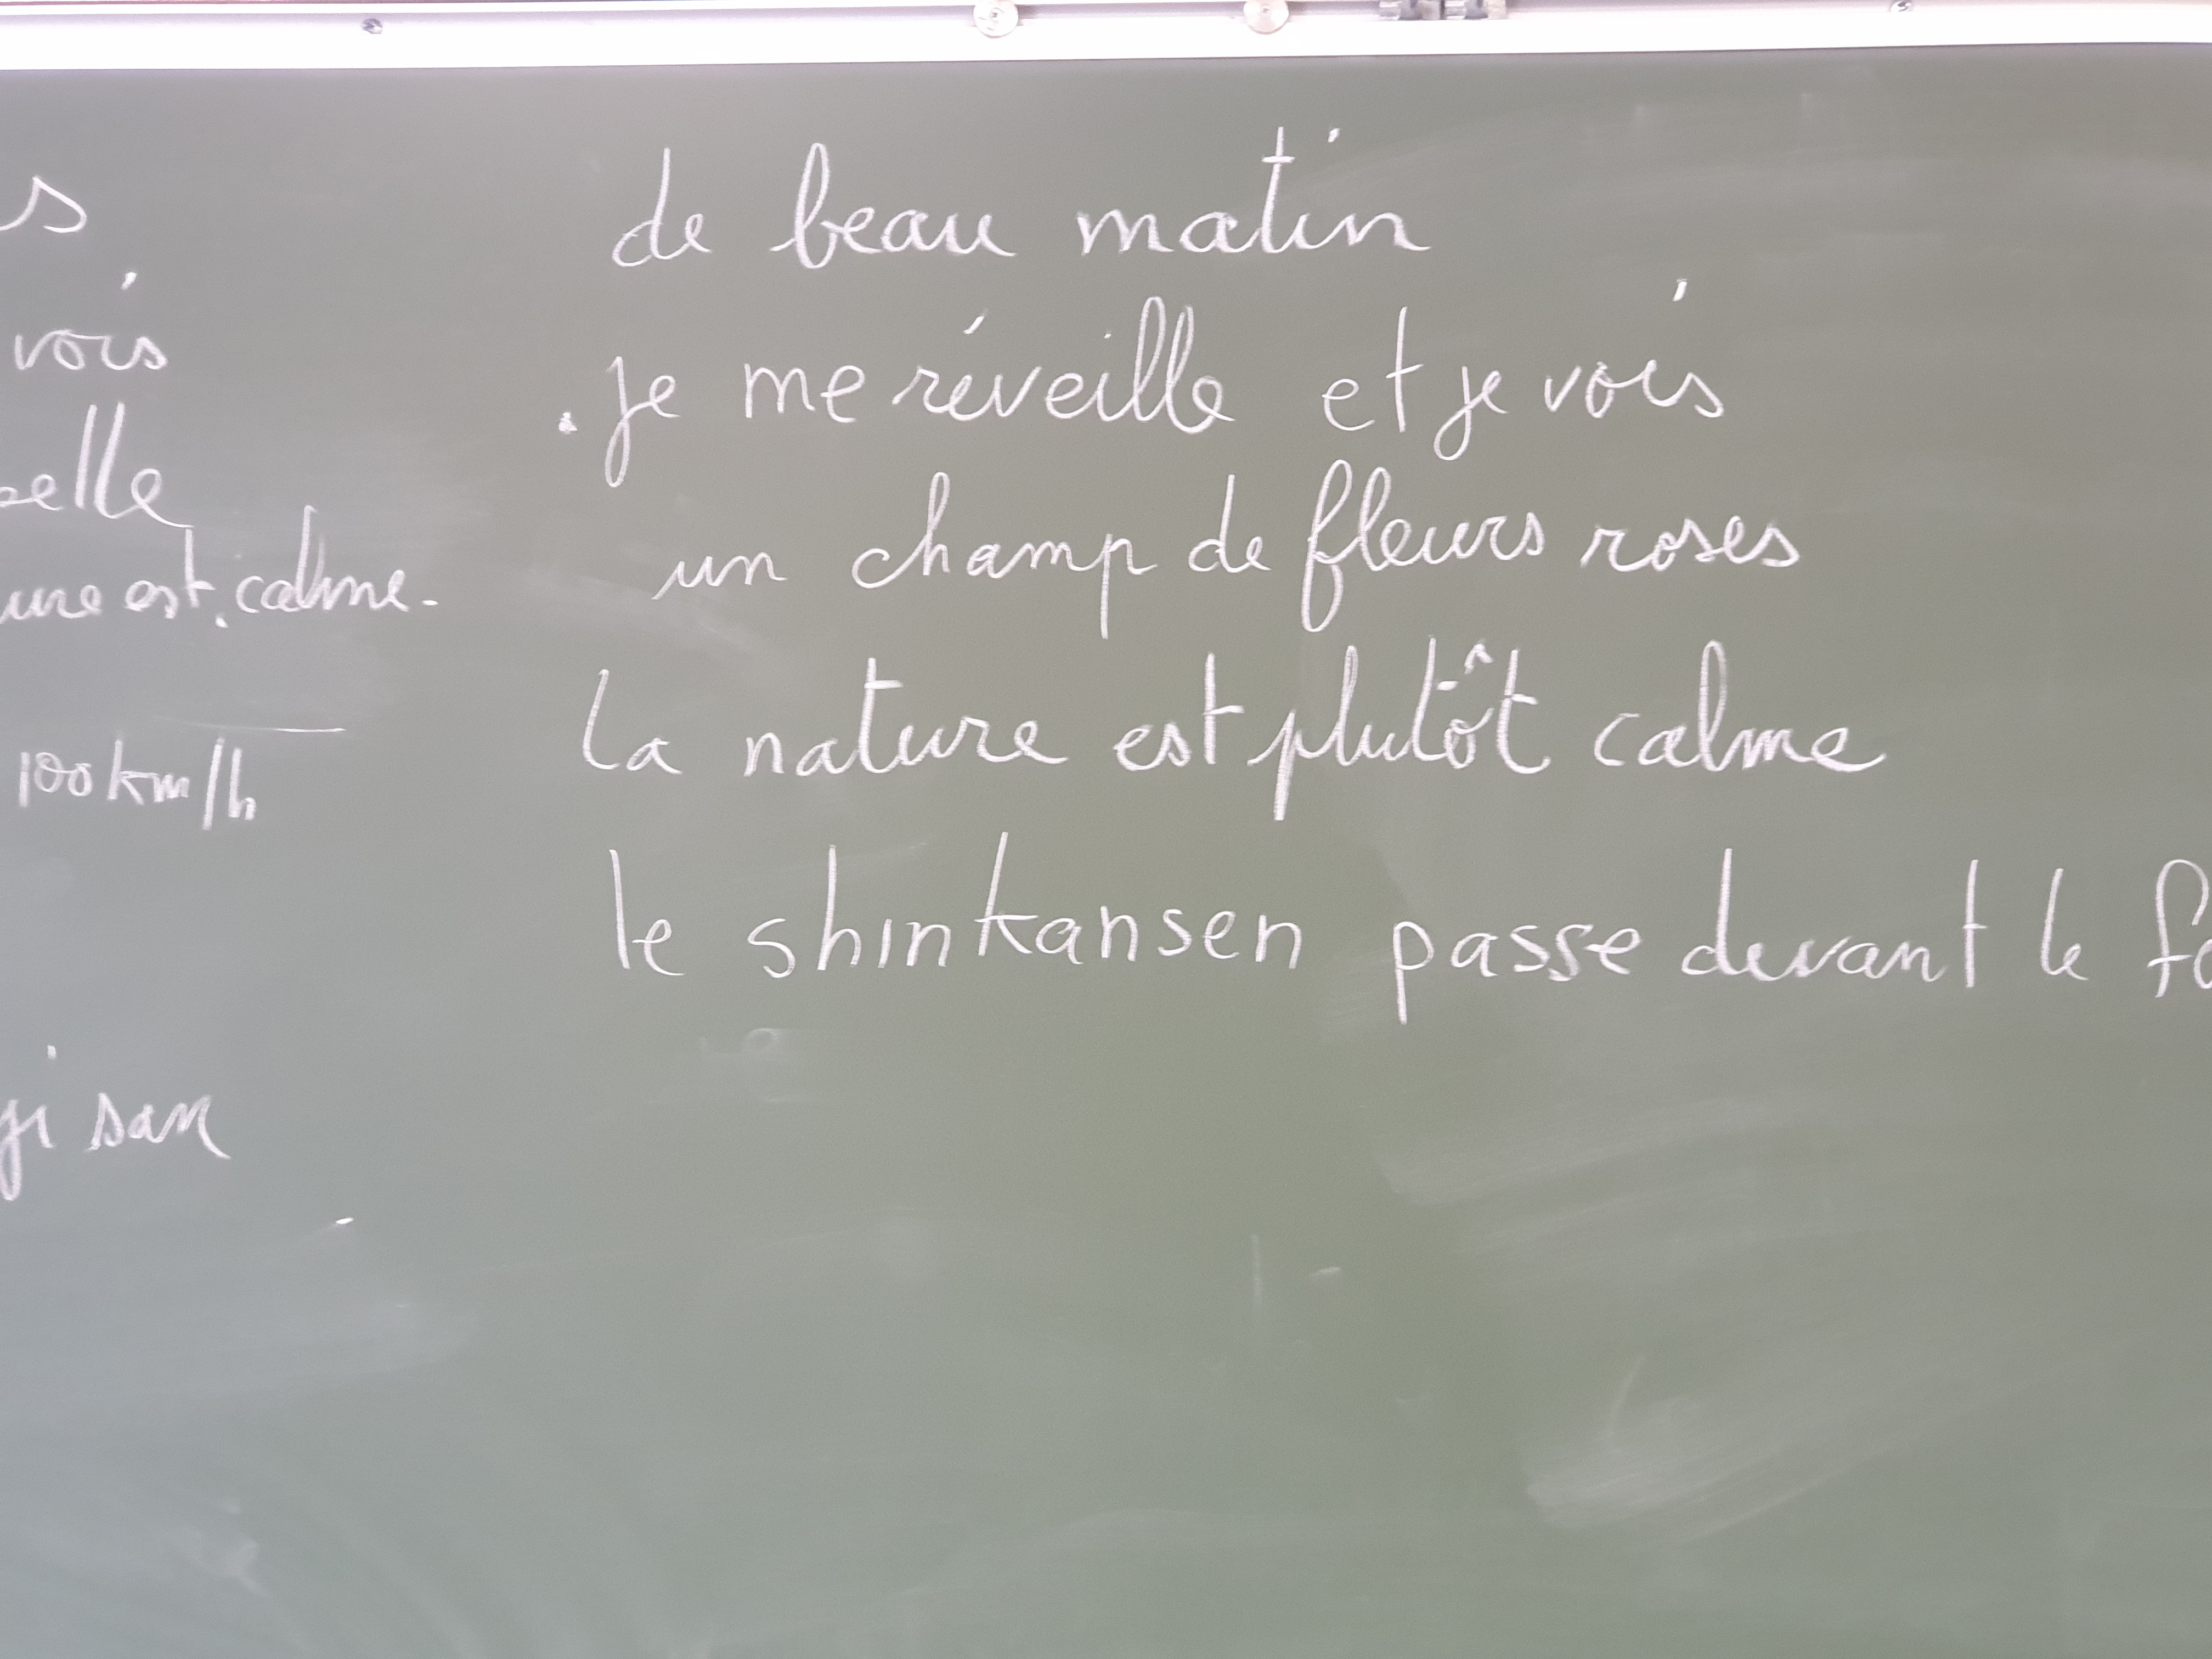 vois
est calme.
100 km/h
san
de beau matin
je me réveille et je vois
un champ de fleurs roses
la nature est plutôt calme
le shinkansen passe devant le